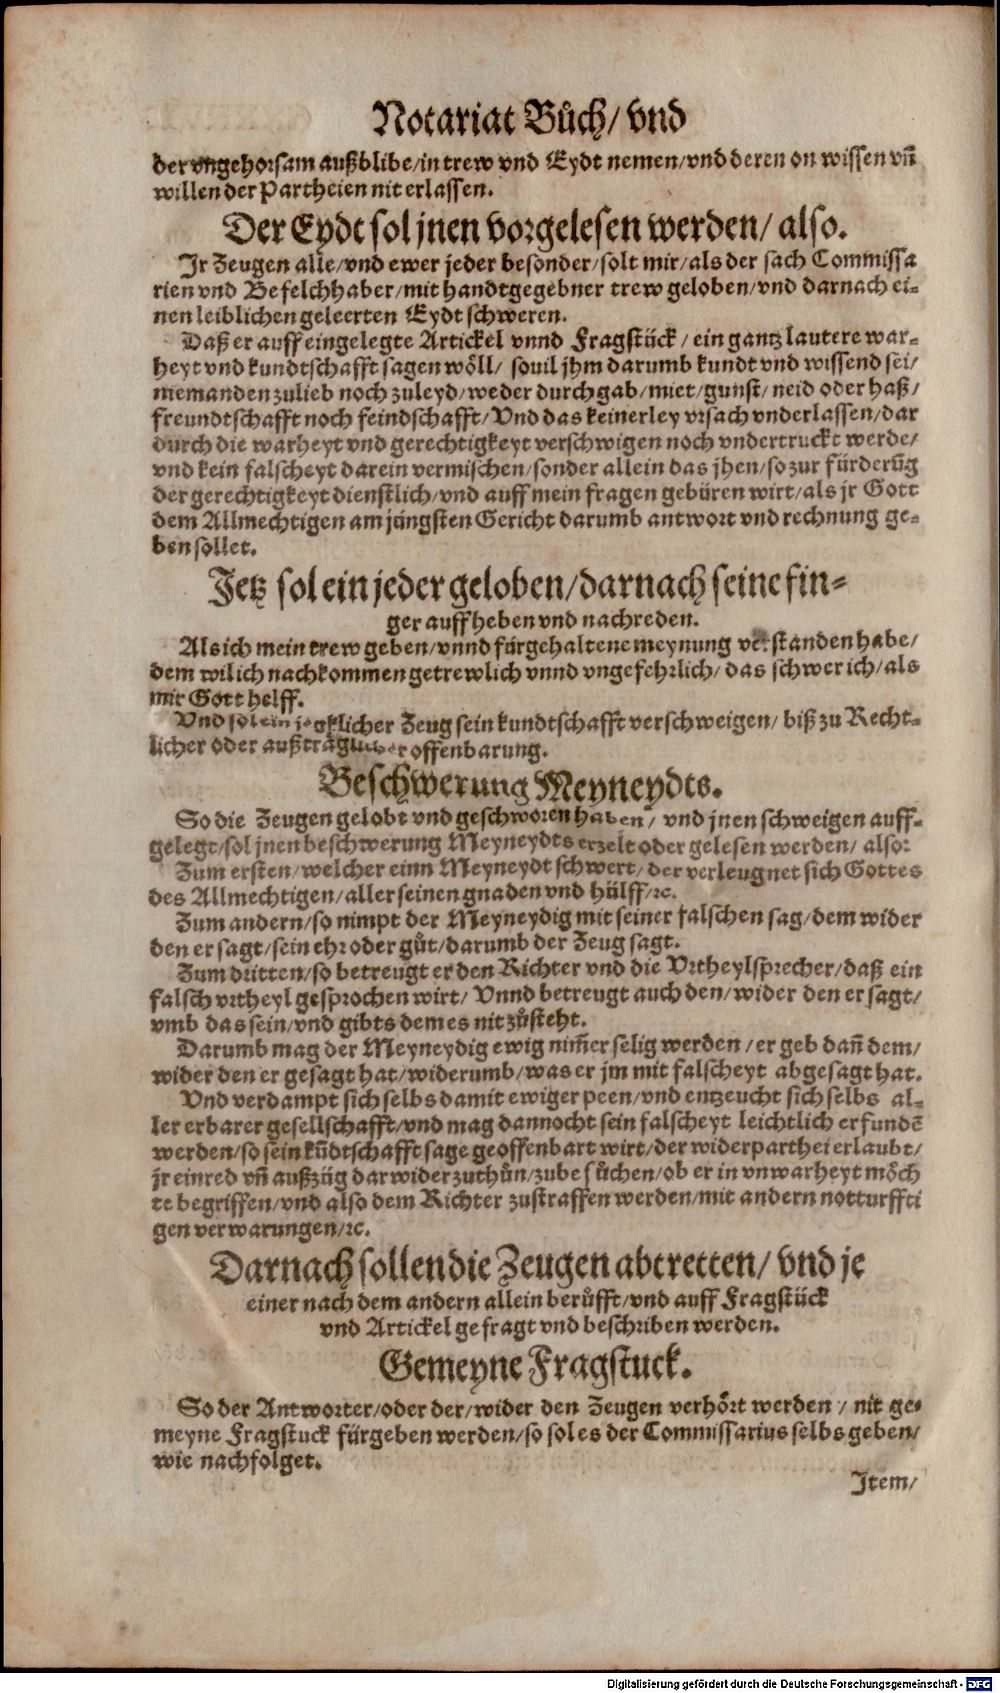 Notariat Bůch/ vnd
der vngehorsam außblibe/in trew vnd Eydt nemen/vnd deren on wissen vñ
willen der Partheien nit erlassen.
Der Eydt sol jnen vorgelesen werden/ also.
Jr Zeugen alle/vnd ewer jeder besonder/solt mir/als der sach Commissa
rien vnd Befelchhaber/mit handtgegebner trew geloben/vnd darnach ei-
nen leiblichen geleerten Eydt schweren.
Daß er auff eingelegte Artickel vnnd Fragstück/ ein gantz lautere war-
heyt vnd kundtschafft sagen wöll/ souil jhm darumb kundt vnd wissend sei/
niemanden zulieb noch zuleyd/weder durch gab/miet/gunst/neid oder haß/
freundtschafft noch feindschafft/Vnd das keinerley vrsach vnderlassen/dar
durch die warheyt vnd gerechtigkeyt verschwigen noch vndertruckt werde/
vnd kein falscheyt darein vermischen/sonder allein das jhen/so zur fürderũg
der gerechtigkeyt dienstlich/vnd auff mein fragen gebüren wirt/als jr Gott
dem Allmechtigen am jüngsten Gericht darumb antwort vnd rechnung ge-
ben sollet.
Jetz sol ein jeder geloben/darnach seine fin-
ger auffheben vnd nachreden.
Als ich mein trew geben/vnnd fürgehaltene meynung verstanden habe/
dem wil ich nachkommen getrewlich vnnd vngefehrlich/das schwer ich/als
mir Gott helff.
Vnd sol ein jegklicher Zeug sein kundtschafft verschweigen/ biß zu Recht-
licher oder außträglicher offenbarung.
Beschwerung Meyneydts.
So die Zeugen gelobt vnd geschworen haben/ vnd jnen schweigen auff-
gelegt/sol jnen beschwerung Meyneydts erzelt oder gelesen werden/ also:
Zum ersten/welcher einn Meyneydt schwert/der verleugnet sich Gottes
des Allmechtigen/aller seinen gnaden vnd hülff/ꝛc.
Zum andern/so nimpt der Meyneydig mit seiner falschen sag/dem wider
den er sagt/sein ehr oder gůt/darumb der Zeug sagt.
Zum dritten/so betreugt er den Richter vnd die Vrtheylsprecher/daß ein
falsch vrtheyl gesprochen wirt/ Vnnd betreugt auch den/wider den er sagt/
vmb das sein/vnd gibts dem es nit zůsteht.
Darumb mag der Meyneydig ewig nim̃er selig werden/er geb dañ dem/
wider den er gesagt hat/widerumb/was er jm mit falscheyt abgesagt hat.
Vnd verdampt sich selbs damit ewiger peen/vnd entzeucht sich selbs al-
ler erbarer gesellschafft/vnd mag dannocht sein falscheyt leichtlich erfundẽ
werden/so sein kũdtschafft sage geoffenbart wirt/der widerparthei erlaubt/
jr einred vñ außzüg darwider zuthůn/zubesůchen/ob er in vnwarheyt möch
te begriffen/vnd also dem Richter zustraffen werden/mit andern notturffti
gen verwarungen/ꝛc.
Darnach sollen die Zeugen abtretten/ vnd je
einer nach dem andern allein berůfft/vnd auff Fragstück
vnd Artickel gefragt vnd beschriben werden.
Gemeyne Fragstuck.
So der Antworter/oder der/wider den Zeugen verhört werden/ nit ge-
meyne Fragstuck fürgeben werden/so sol es der Commissarius selbs geben/
wie nachfolget.
Jtem/
Digitalisierung gefördert durch die Deutsche Forschungsgemeinschaft - DFG